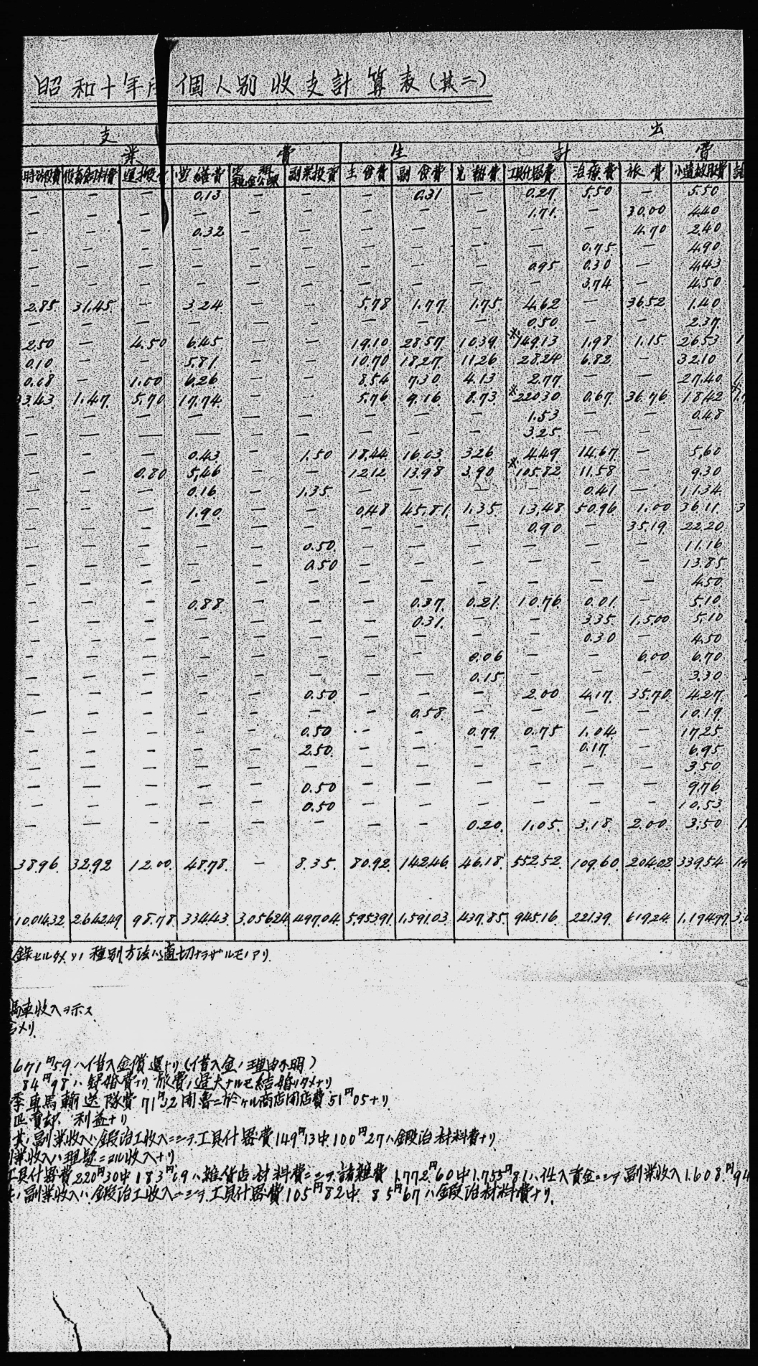 昭和十年度個人別收支計算表(其二)
支 出
業 費 生 計 費
飼料費 運搬費 營繕費 副業投資 主食費 副食費 光熱費 工具什器費 治療費 旅費
— — — 0.13 — — — 0.31 — 0.29 5.50 — 5.50
— — — — — — — — — 1.71 — 30.00 4.40
— — — 0.32 — — — — — — — 4.70 2.40
— — — — — — — — — — 0.75 — 4.90
— — — — — — — — — 0.95 0.30 — 4.43
— — — — — — — — — — 3.74 — 4.50
2.85 31.45 — 3.24 — — 5.78 1.77 1.75 4.62 — 36.52 1.40
— — — — — — — — — 0.50 — — 2.37
2.50 — 4.50 6.45 — — 19.10 28.57 10.39 ※149.13 1.98 1.15 26.53
0.10 — — 5.81 — — 10.70 18.27 11.26 28.24 6.82 — 32.10
0.08 — 1.00 6.26 — — 8.54 7.30 4.13 2.77 — — 27.40
33.43 1.47 5.70 17.74 — — 5.76 9.16 8.73 ※220.30 0.67 36.76 18.42
— — — — — — — — — 1.53 — — 0.48
— — — — — — — — — 3.25 — —
— — — 0.43 — 1.50 18.44 16.03 3.26 4.49 14.67 — 5.60
— — 0.80 5.46 — — 12.12 13.98 3.90 ※105.82 11.58 — 9.30
— — — 0.16 — 1.35 — — — — 0.41 — 11.34
— — — 1.90 — — 0.48 45.81 1.35 13.48 50.96 1.00 36.11
— — — — — — — — — 0.90 — 35.19 22.20
— — — — — 0.50 — — — — — — 11.16
— — — — — 0.50 — — — — — — 13.85
— — — — — — — — — — — — 4.50
— — — 0.88 — — — 0.37 0.21 10.76 0.01 — 5.10
— — — — — — — 0.31 — — 3.35 15.00 5.10
— — — — — — — — — — 0.30 — 4.50
— — — — — — — — 0.06 — — 6.00 6.70
— — — — — — — — 0.15 — — — 3.30
— — — — — 0.50 — — — 2.00 4.17 35.70 4.27
— — — — — — — 0.58 — — — — 10.19
— — — — — 0.50 — — 0.79 0.75 1.04 — 17.25
— — — — — 2.50 — — — — 0.17 — 6.95
— — — — — — — — — — — — 3.50
— — — — — 0.50 — — — — — — 9.76
— — — — — 0.50 — — — — — — 10.53
— — — — — — — — 0.20 1.05 3.18 2.00 3.50
38.96 32.92 12.00 48.78 — 8.35 80.92 142.46 46.18 552.52 109.60 204.02 339.54
10,014.32 2,642.49 98.78 334.43 3,056.24 497.04 5,953.91 1,591.03 437.85 945.16 221.39 619.24 1,194.97
錄セルタメソノ種別方法ハ適切ナラザルモノアリ
馬車收入ヲ示ス
671円59ハ借入金償還ナリ(借入金ノ理由不明)
84円98ハ結婚費ナリ旅費ノ過大ナルモ結婚ノタメナリ
馬輸送隊費71円32 商店開店費51円05ナリ
賣却ノ利益ナリ
其ノ副業收入ハ鍛冶工收入ニシテ工具什器費149円13中100円27ハ鍛冶材料費ナリ
業收入ハ ニヨル收入ナリ
工具什器費220円30中183円69ハ雜貨店材料費ニシテ諸雜費1,772円60中1,755円81ハ仕入資金ニシテ副業收入1,608円94
副業收入ハ鍛冶工收入ニシテ工具什器費105円82中85円67ハ鍛冶材料費ナリ